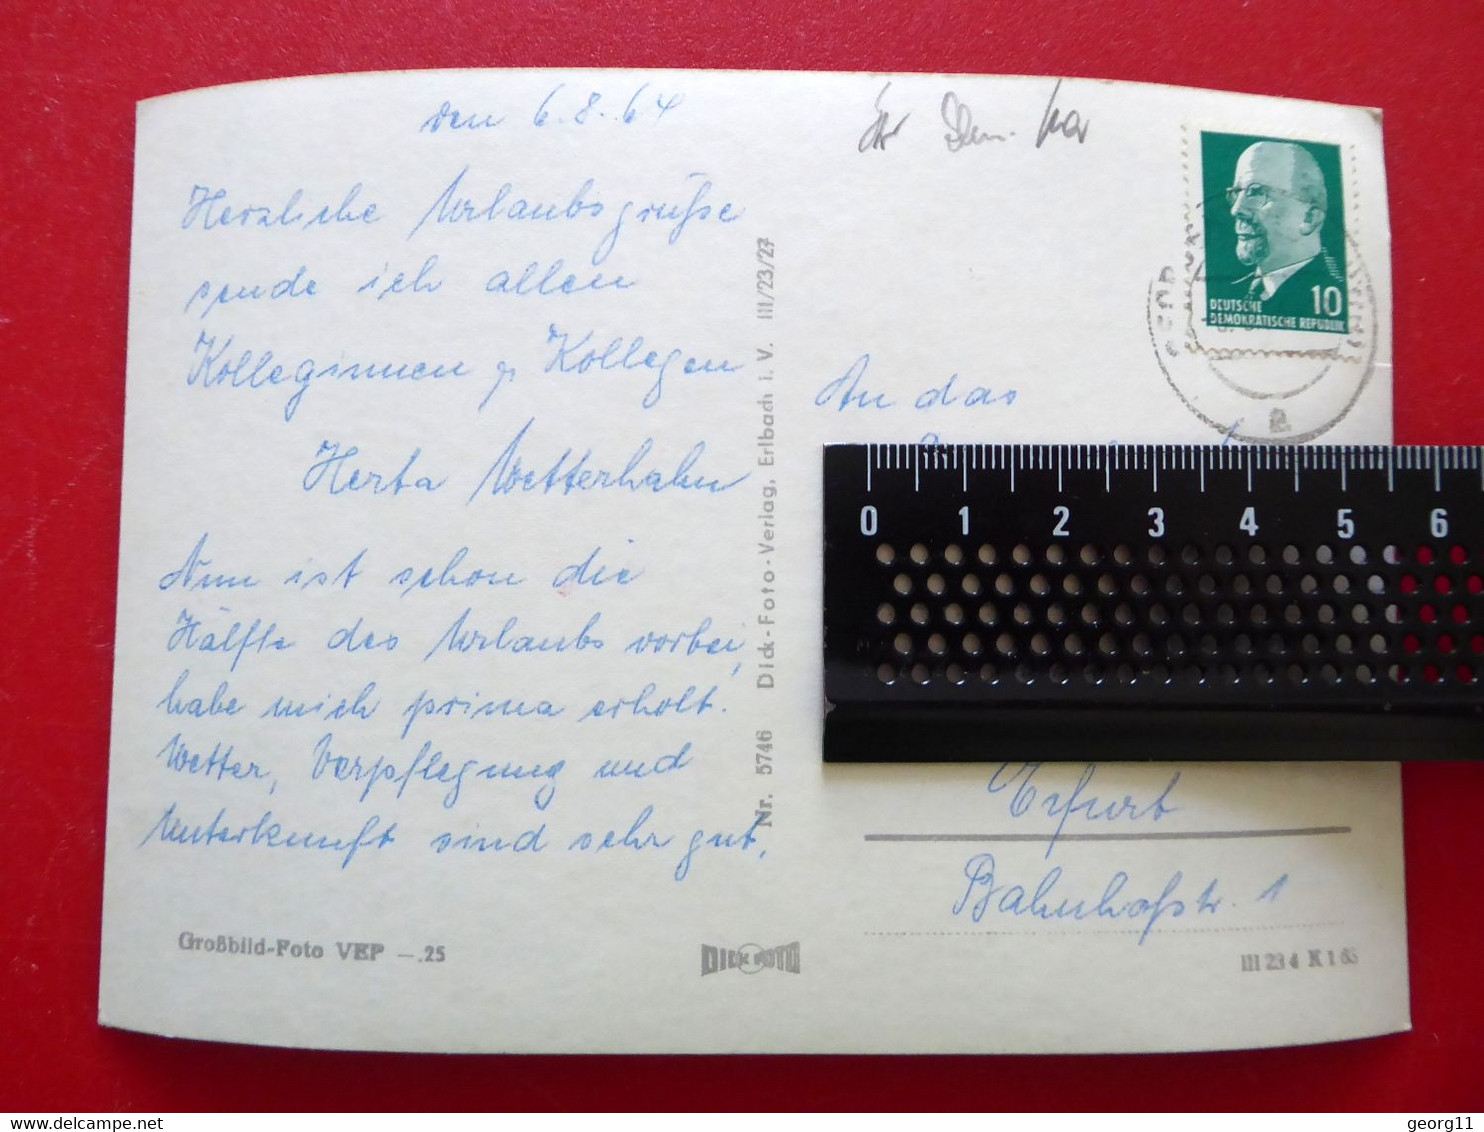 den 6.8.64
Herzliche Urlaubsgrüße
sende ich allen
Kolleginnen Kollegen
Herta Wetterhahn
Nun ist schon die
Hälfte des Urlaubs vorbei,
habe mich prima erholt.
Wetter, Verpflegung und
Unterkunft sind sehr gut.
Großbild-Foto VEP —.25
Nr. 5746 Dick-Foto-Verlag, Erlbach i. V. III/23/27
DICK FOTO
10
DEUTSCHE
DEMOKRATISCHE REPUBLIK
a
An das
0 1 2 3 4 5 6
Erfurt
Bahnhofstr. 1
III 23 4 K 1 63
delcampe.net
georg11